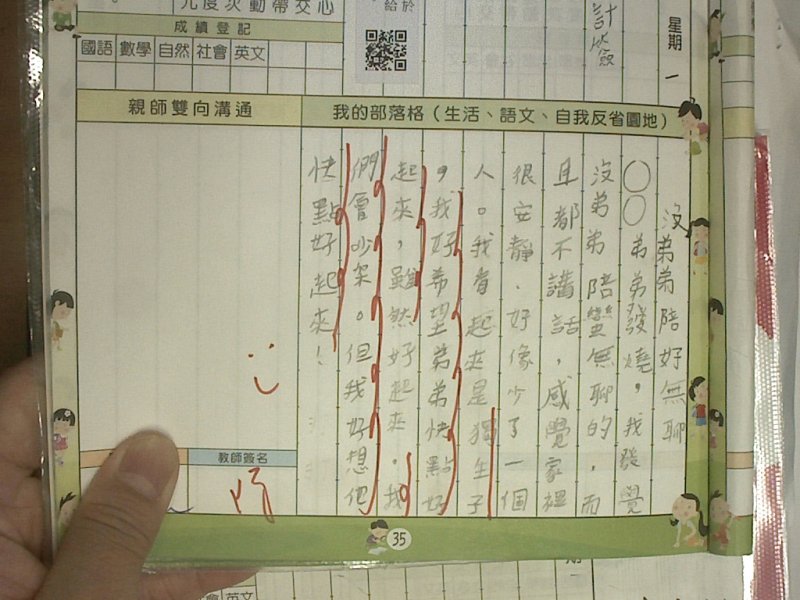 九度次動帶交心
給於
成績登記
國語 數學 自然 社會 英文
計
星期一
親師雙向溝通
我的部落格（生活、語文、自我反省園地）
沒弟弟陪好無聊
○○弟弟發燒，我發覺
沒弟弟陪蠻無聊的，而
且都不講話，感覺家裡
很安靜，好像少了一個
人。我看起來是獨生子
，我好希望弟弟快點好
起來，雖然好起來，我
們會吵架。但我好想他
快點好起來！
教師簽名
35
英文